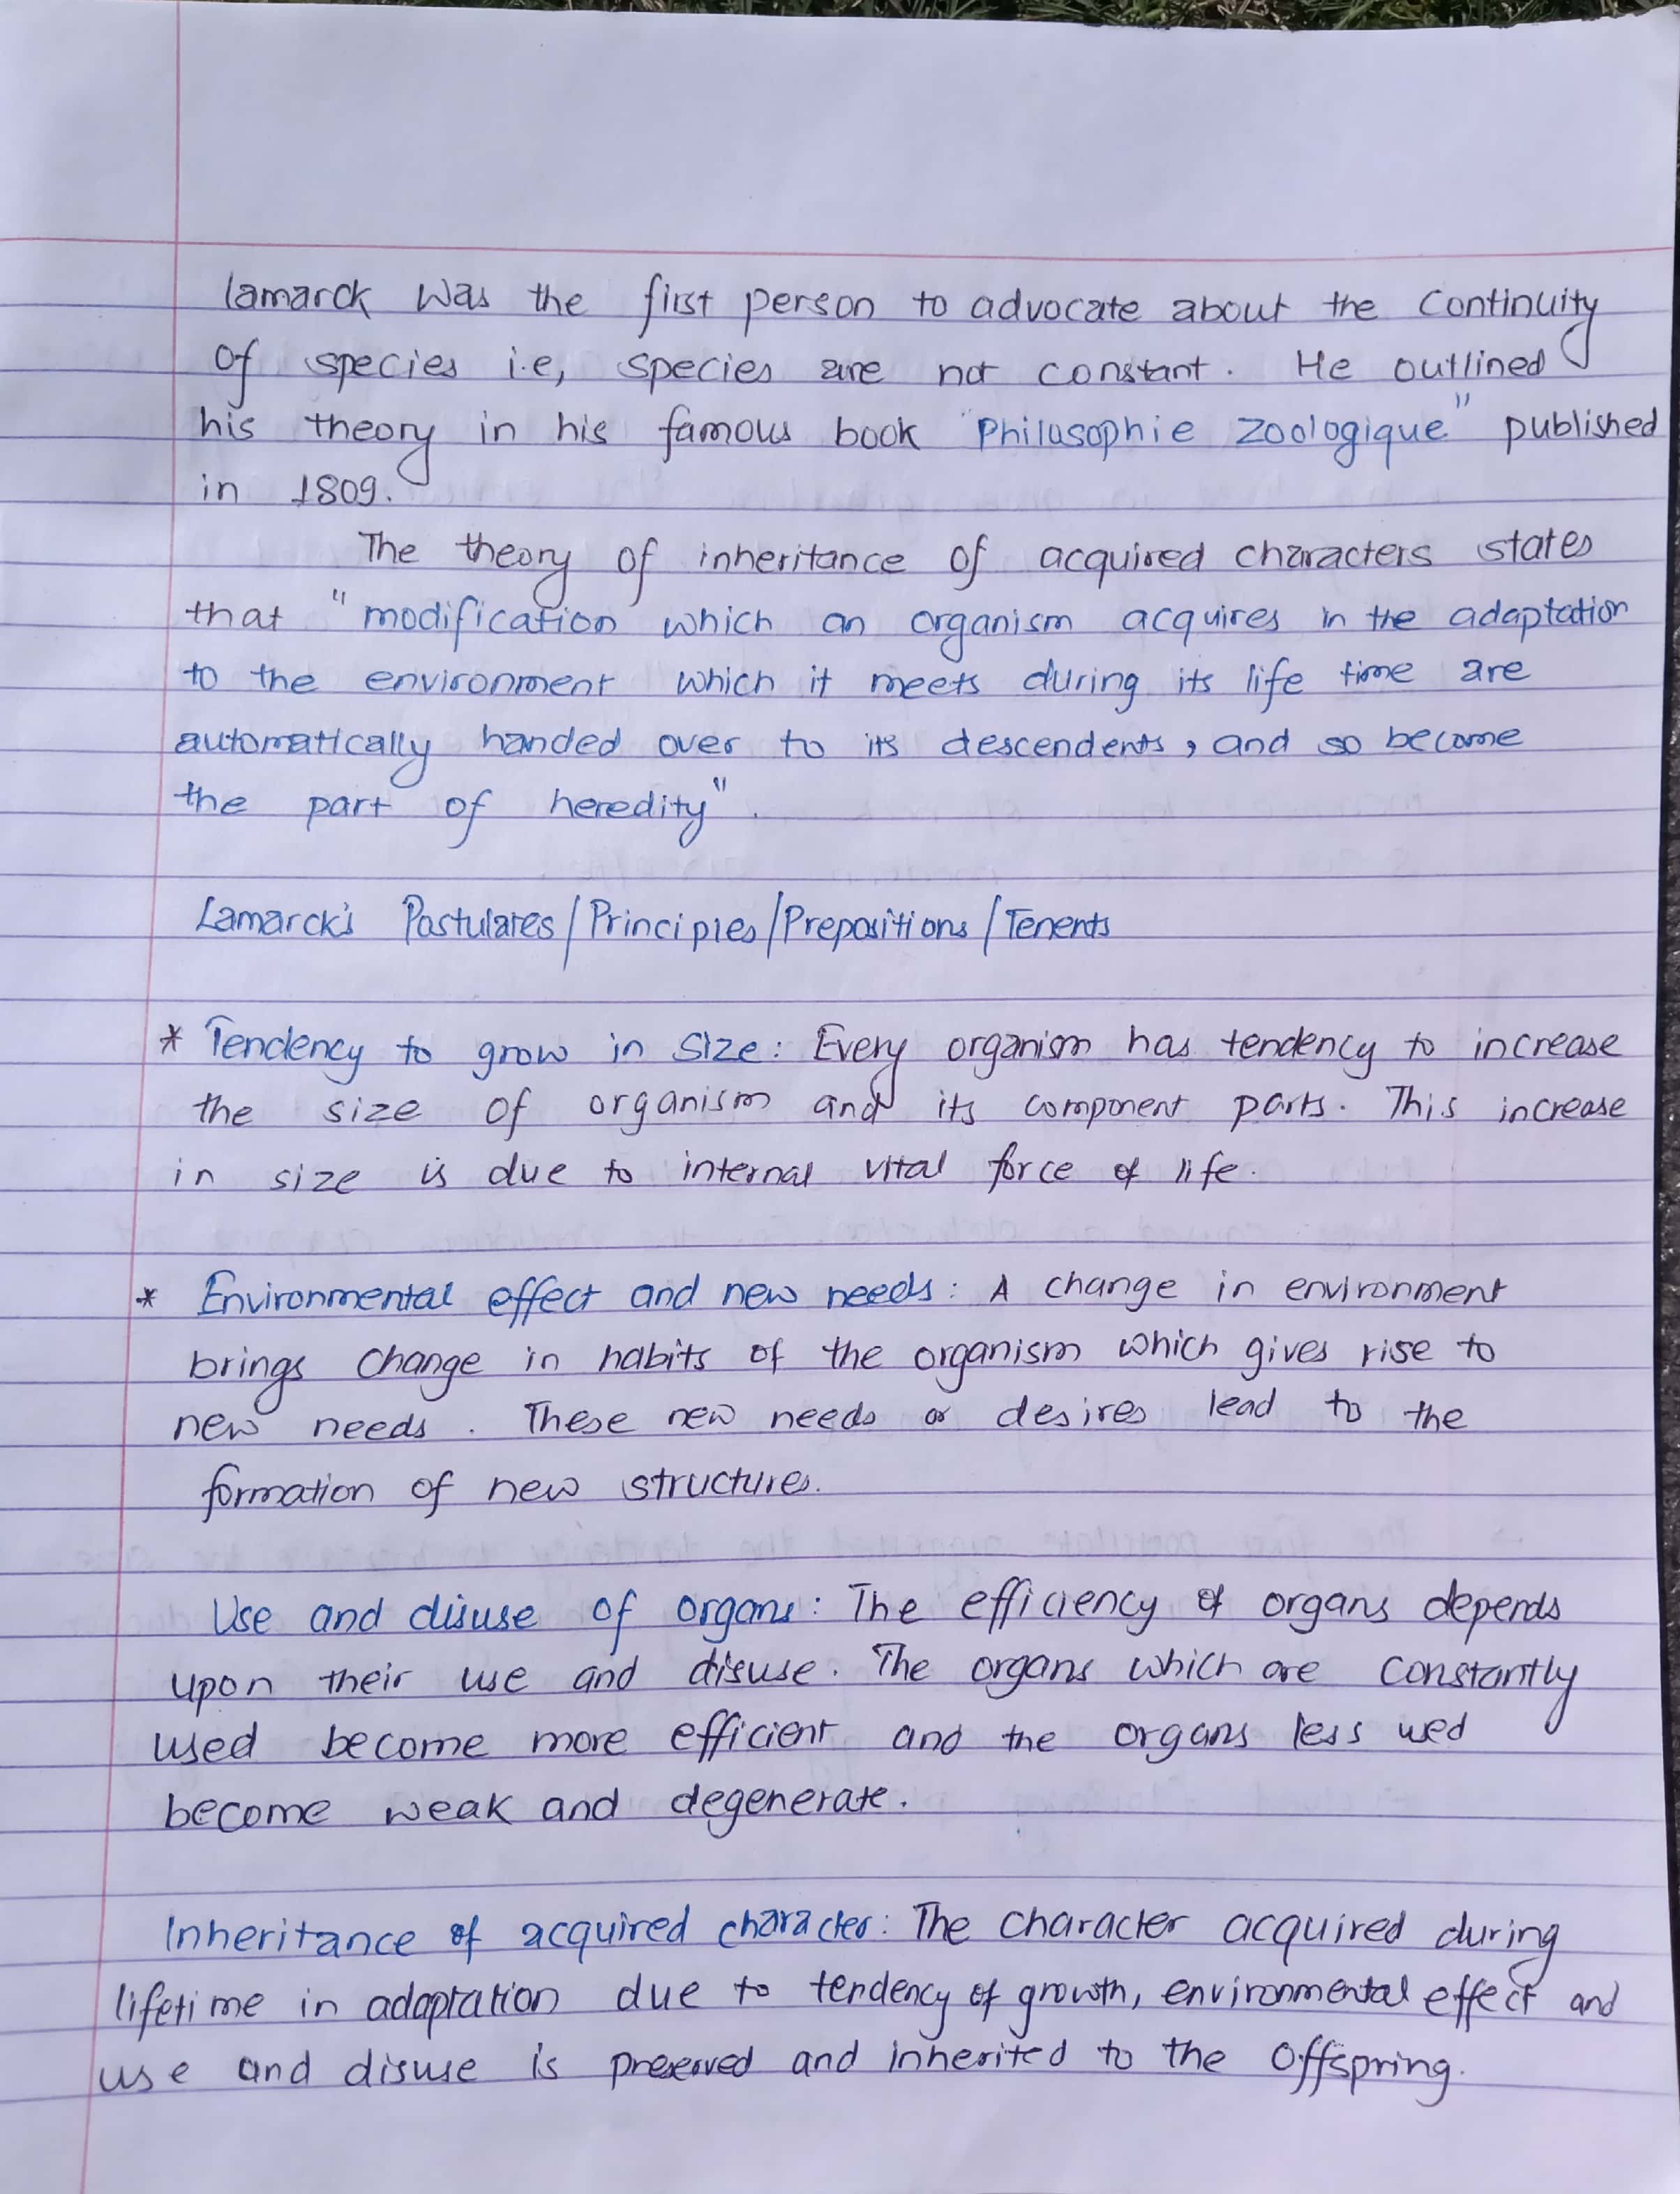 Lamarck was the first person to advocate about the continuity
of species i.e, species are not constant. He outlined
his theory in his famous book "Philosophie Zoologique" published
in 1809.
The theory of inheritance of acquired characters states
that "modification which an organism acquires in the adaptation
to the environment which it meets during its life time are
automatically handed over to its descendents, and so become
the part of heredity".
Lamarck's Postulates/Principles/Prepositions/Tenents
* Tendency to grow in size: Every organism has tendency to increase
the size of organism and its component parts. This increase
in size is due to internal vital force of life.
* Environmental effect and new needs: A change in environment
brings change in habits of the organism which gives rise to
new needs. These new needs or desires lead to the
formation of new structures.
Use and disuse of organs: The efficiency of organs depends
upon their use and disuse. The organs which are constantly
used become more efficient and the organs less used
become weak and degenerate.
Inheritance of acquired character: The character acquired during
lifetime in adaptation due to tendency of growth, environmental effect and
use and disuse is preserved and inherited to the offspring.